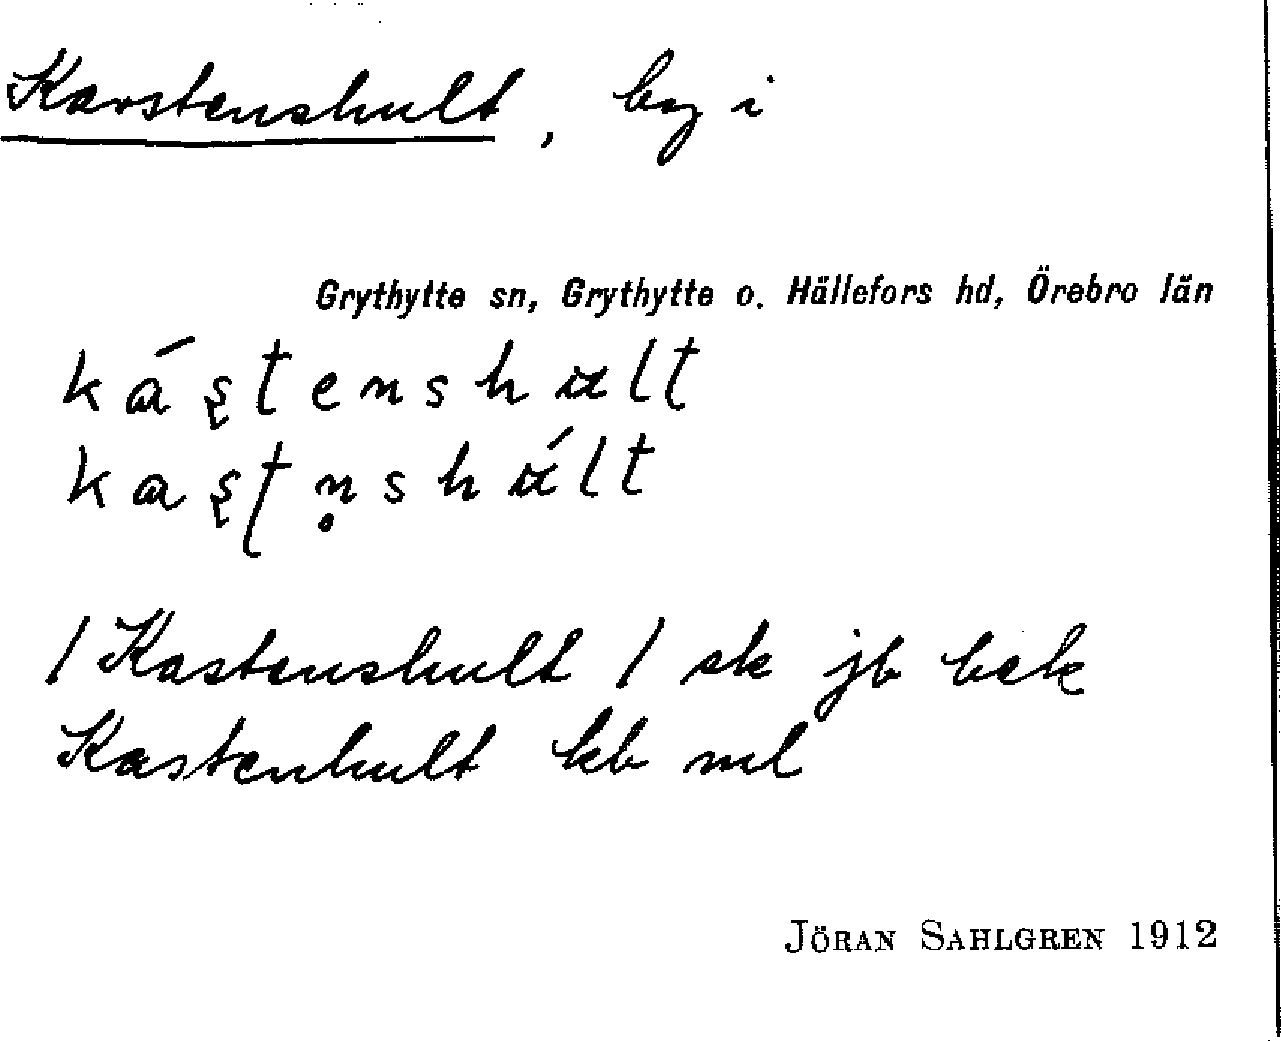 Karstenshult, by i
Grythytte sn, Grythytte o. Hällefors hd, Örebro län
ká̱ʂʈenshult
kaʂʈn̥shúlt
/ Kastenshult / sk jb bek
Kastenhult kb ml
JÖRAN SAHLGREN 1912